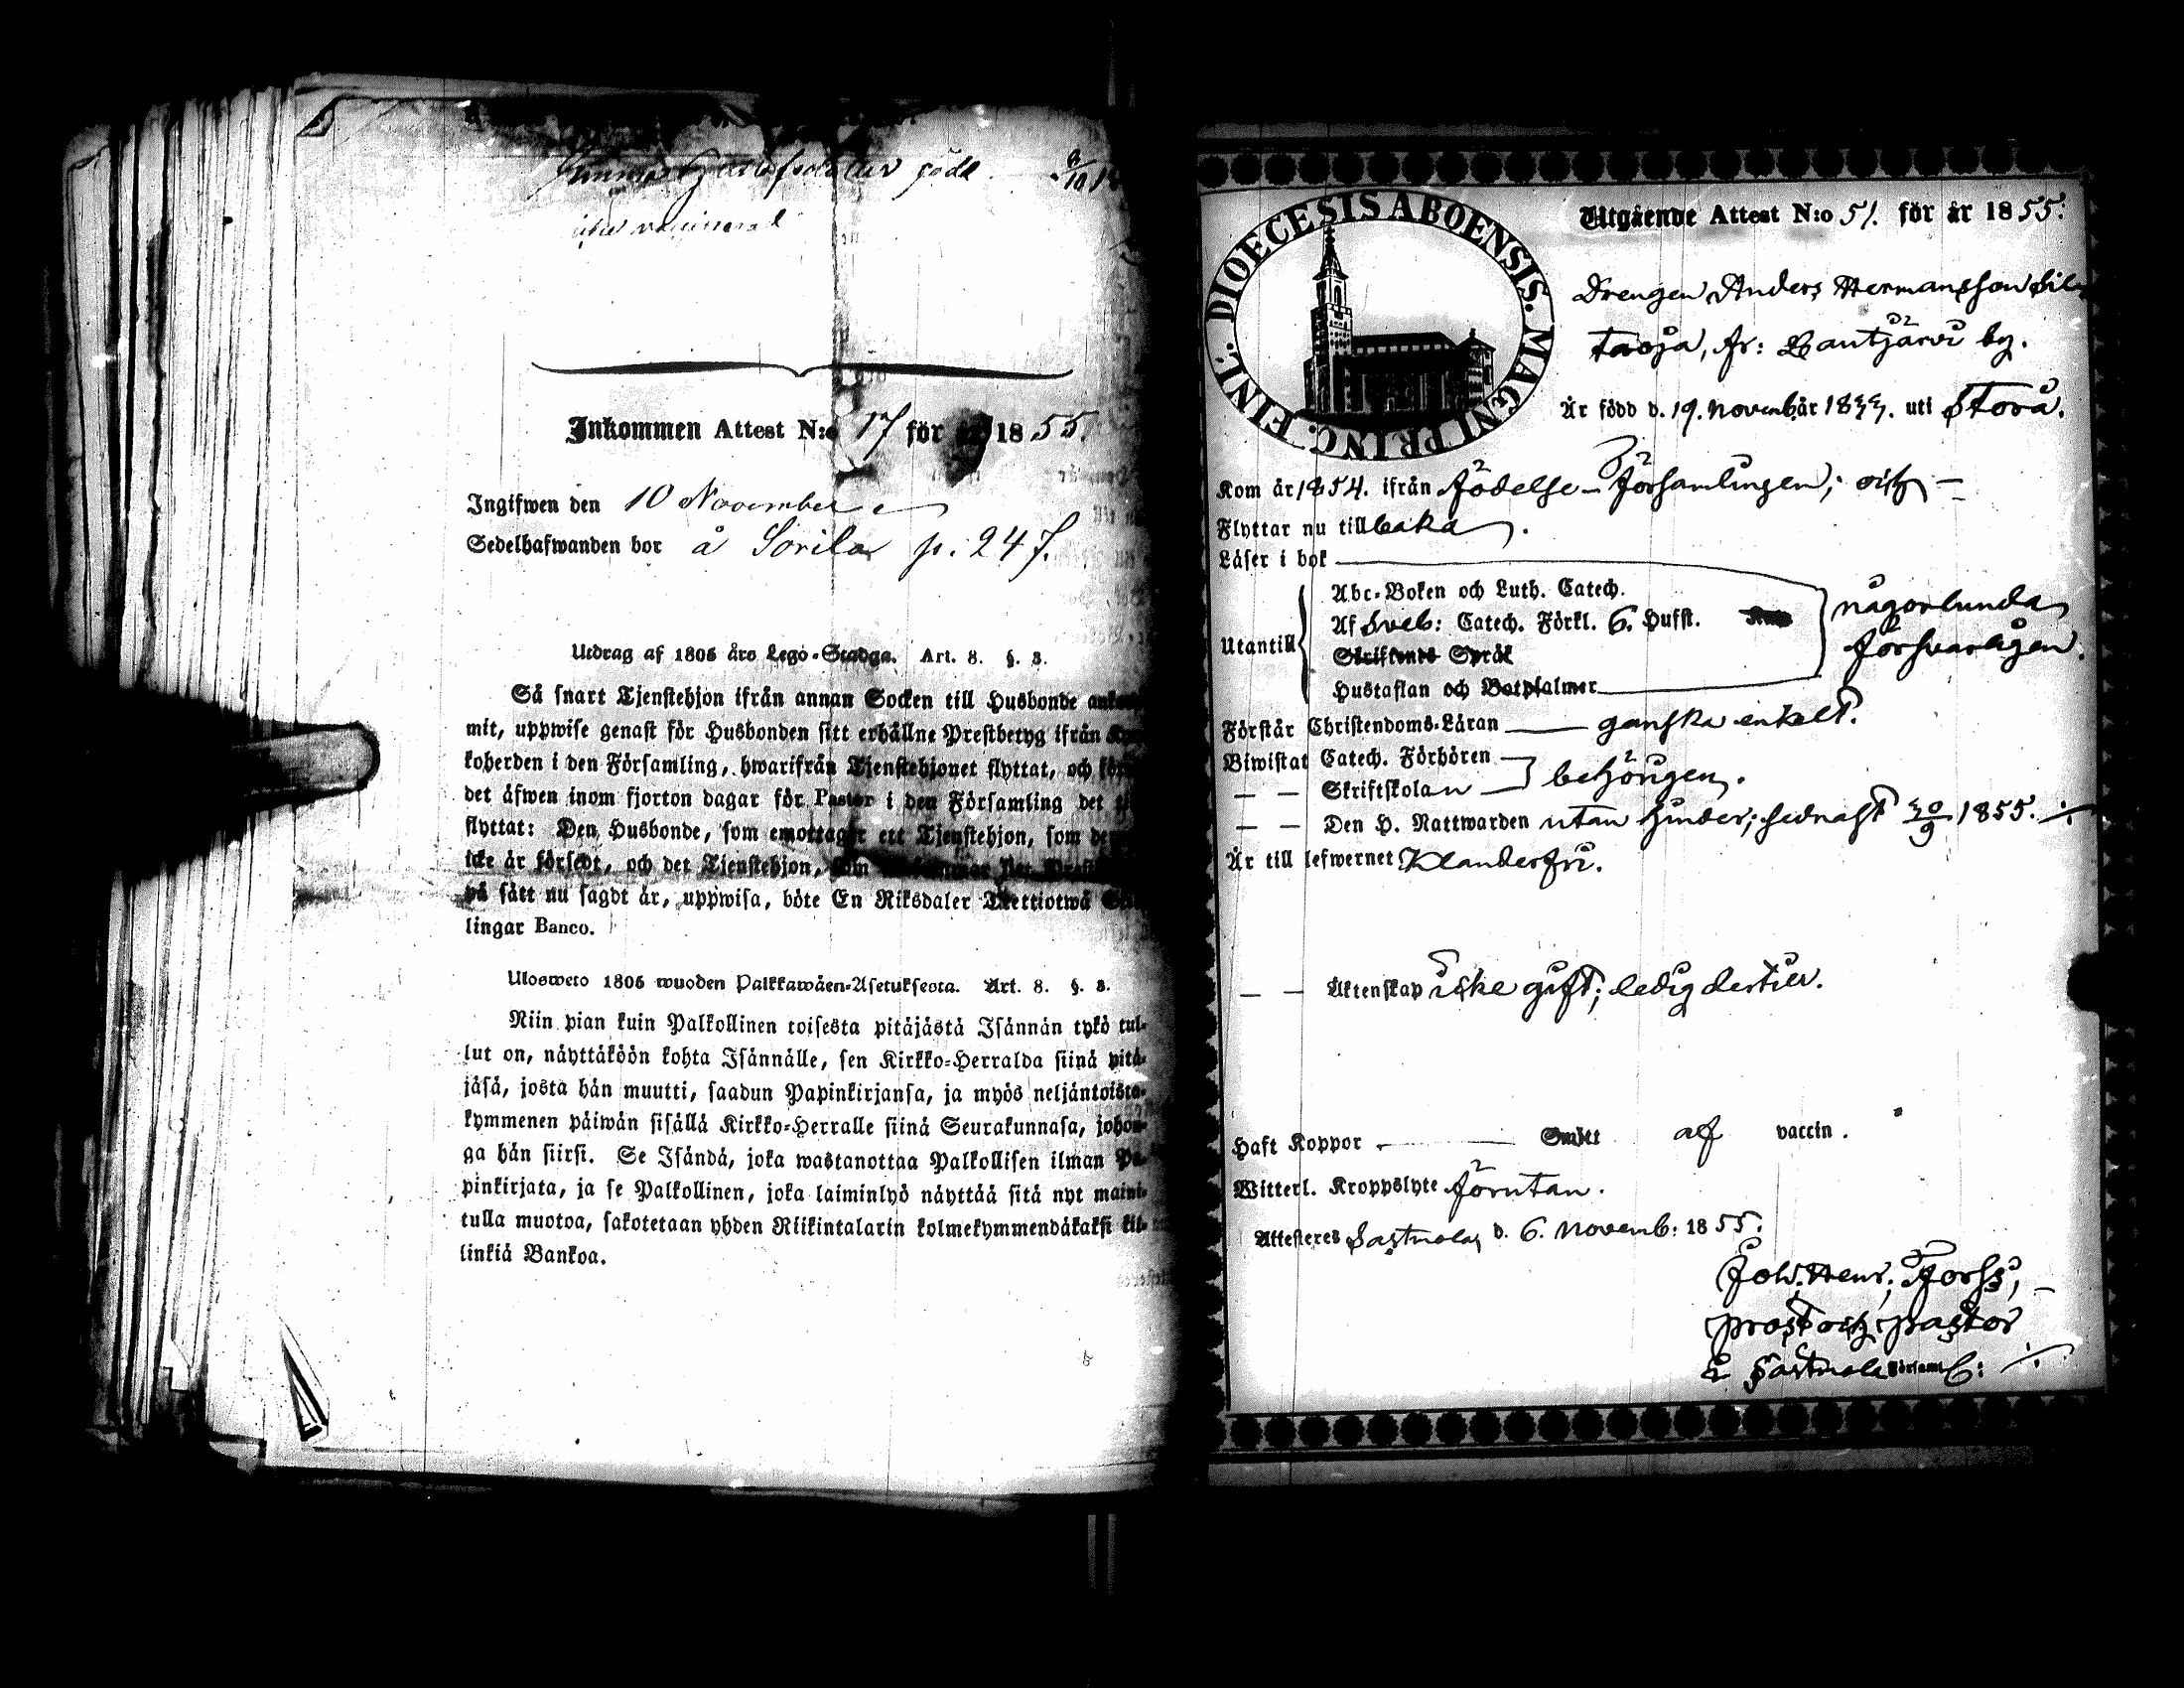 Gustafsdotter född 8/10 18
icke vaccinerad
Inkommen Attest N:o 17 för år 1855.
Ingifwen den 10 November
Sedelhafwanden bor å Sorila p. 247.
Utdrag af 1805 års Lego-Stadga. Art. 8. §. 3.
Så snart Tjenstehjon ifrån annan Socken till Husbonde ankom-
mit, uppwise genast för Husbonden sitt erhållne Prestbetyg ifrån
koherden i den Församling, hwarifrån Tjenstehjonet flyttat, och
det äfwen inom fjorton dagar för Pastor i den Församling det
flyttat: Den Husbonde, som emottager ett Tjenstehjon, som
icke är försedt, och det Tjenstehjon, som
på sätt nu sagdt är, uppwisa, böte En Riksdaler Trettiotwå
lingar Banco.
Ulosweto 1805 wuoden Palkkawäen-Asetuksesta. Art. 8. §. 3.
Niin pian kuin Palkollinen toisesta pitäjästä Isännän tykö tul-
lut on, näyttäköön kohta Isännälle, sen Kirkko-Herralda siinä pitä-
jäsä, josta hän muutti, saadun Papinkirjansa, ja myös neljäntoista-
kymmenen päiwän sisällä Kirkko-Herralle siinä Seurakunnasa, johon-
ga hän siirsi. Se Isändä, joka wastanottaa Palkollisen ilman Pa-
pinkirjata, ja se Palkollinen, joka laiminlyö näyttää sitä nyt maini-
tulla muotoa, sakotetaan yhden Riikintalarin kolmekymmendäkaksi kil-
linkiä Bankoa.
DIOECESIS ABOENSIS. MAGNI PRINC. FINL.
Utgående Attest N:o 51. för år 1855.
Drengen Anders Hermansson
fr: Lantjärvi by.
Är född d. 19. Novemb. år 18 uti Storå.
Kom år 1854. ifrån födelse-församlingen; och
Flyttar nu tillbaka.
Läser i bok
Abc-Boken och Luth. Catech.
Utantill Af Sveb: Catech. Förkl. 6. Hufst.
Skriftenes Språk
Hustaflan och Botpsalmer
någorlunda
försvarligen.
Förstår Christendoms-Läran ganska enkelt.
Biwistat Catech. Förhören
— — Skriftskolan behörigen.
— — Den H. Nattwarden utan hinder; sednast 30/9 1855.
Är till lefwernet klanderfri.
— — Äktenskap icke gift; ledig dertill.
Haft Koppor Smitt af vaccin.
Witterl. Kroppslyte förutan.
Attesteres Sastmola d. 6. Novemb: 1855.
Joh. Henr. Forss,
prost och pastor
i Sastmola Församl: